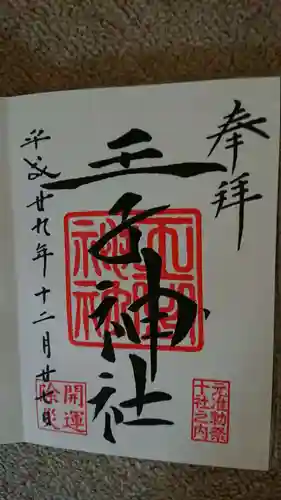 奉拝
王子神社
王子神社
元准勅祭
十社之内
開運
除災
平成廿九年十二月廿七日